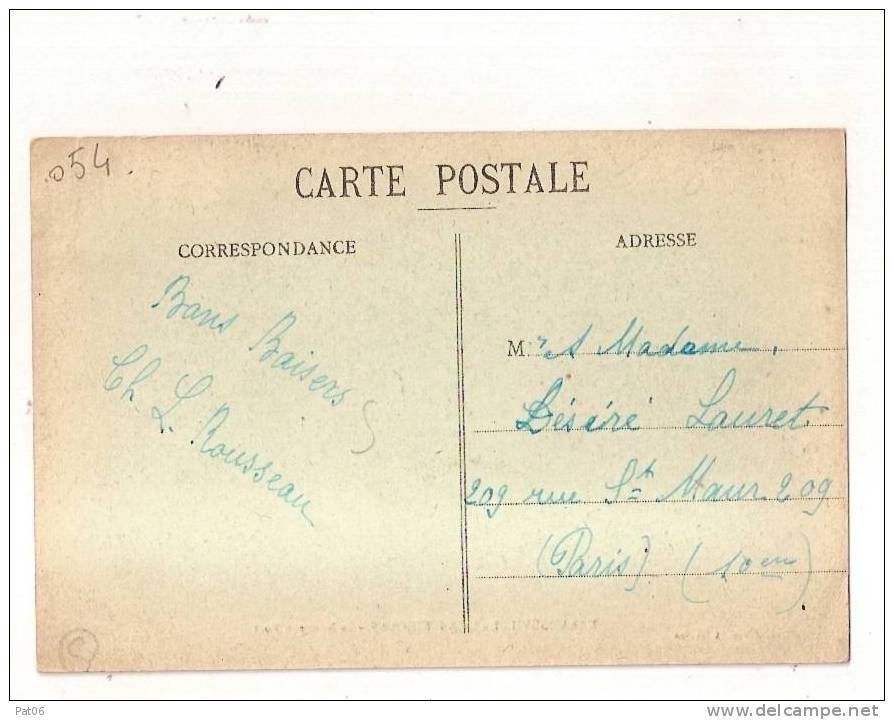 054.
CARTE POSTALE
CORRESPONDANCE
ADRESSE
Bons Baisers
Ch. L. Rousseau
M. A Madame,
Désiré Lauret
209 rue St Maur 209
(Paris) (10em)
C
Pat06
www.delcampe.net